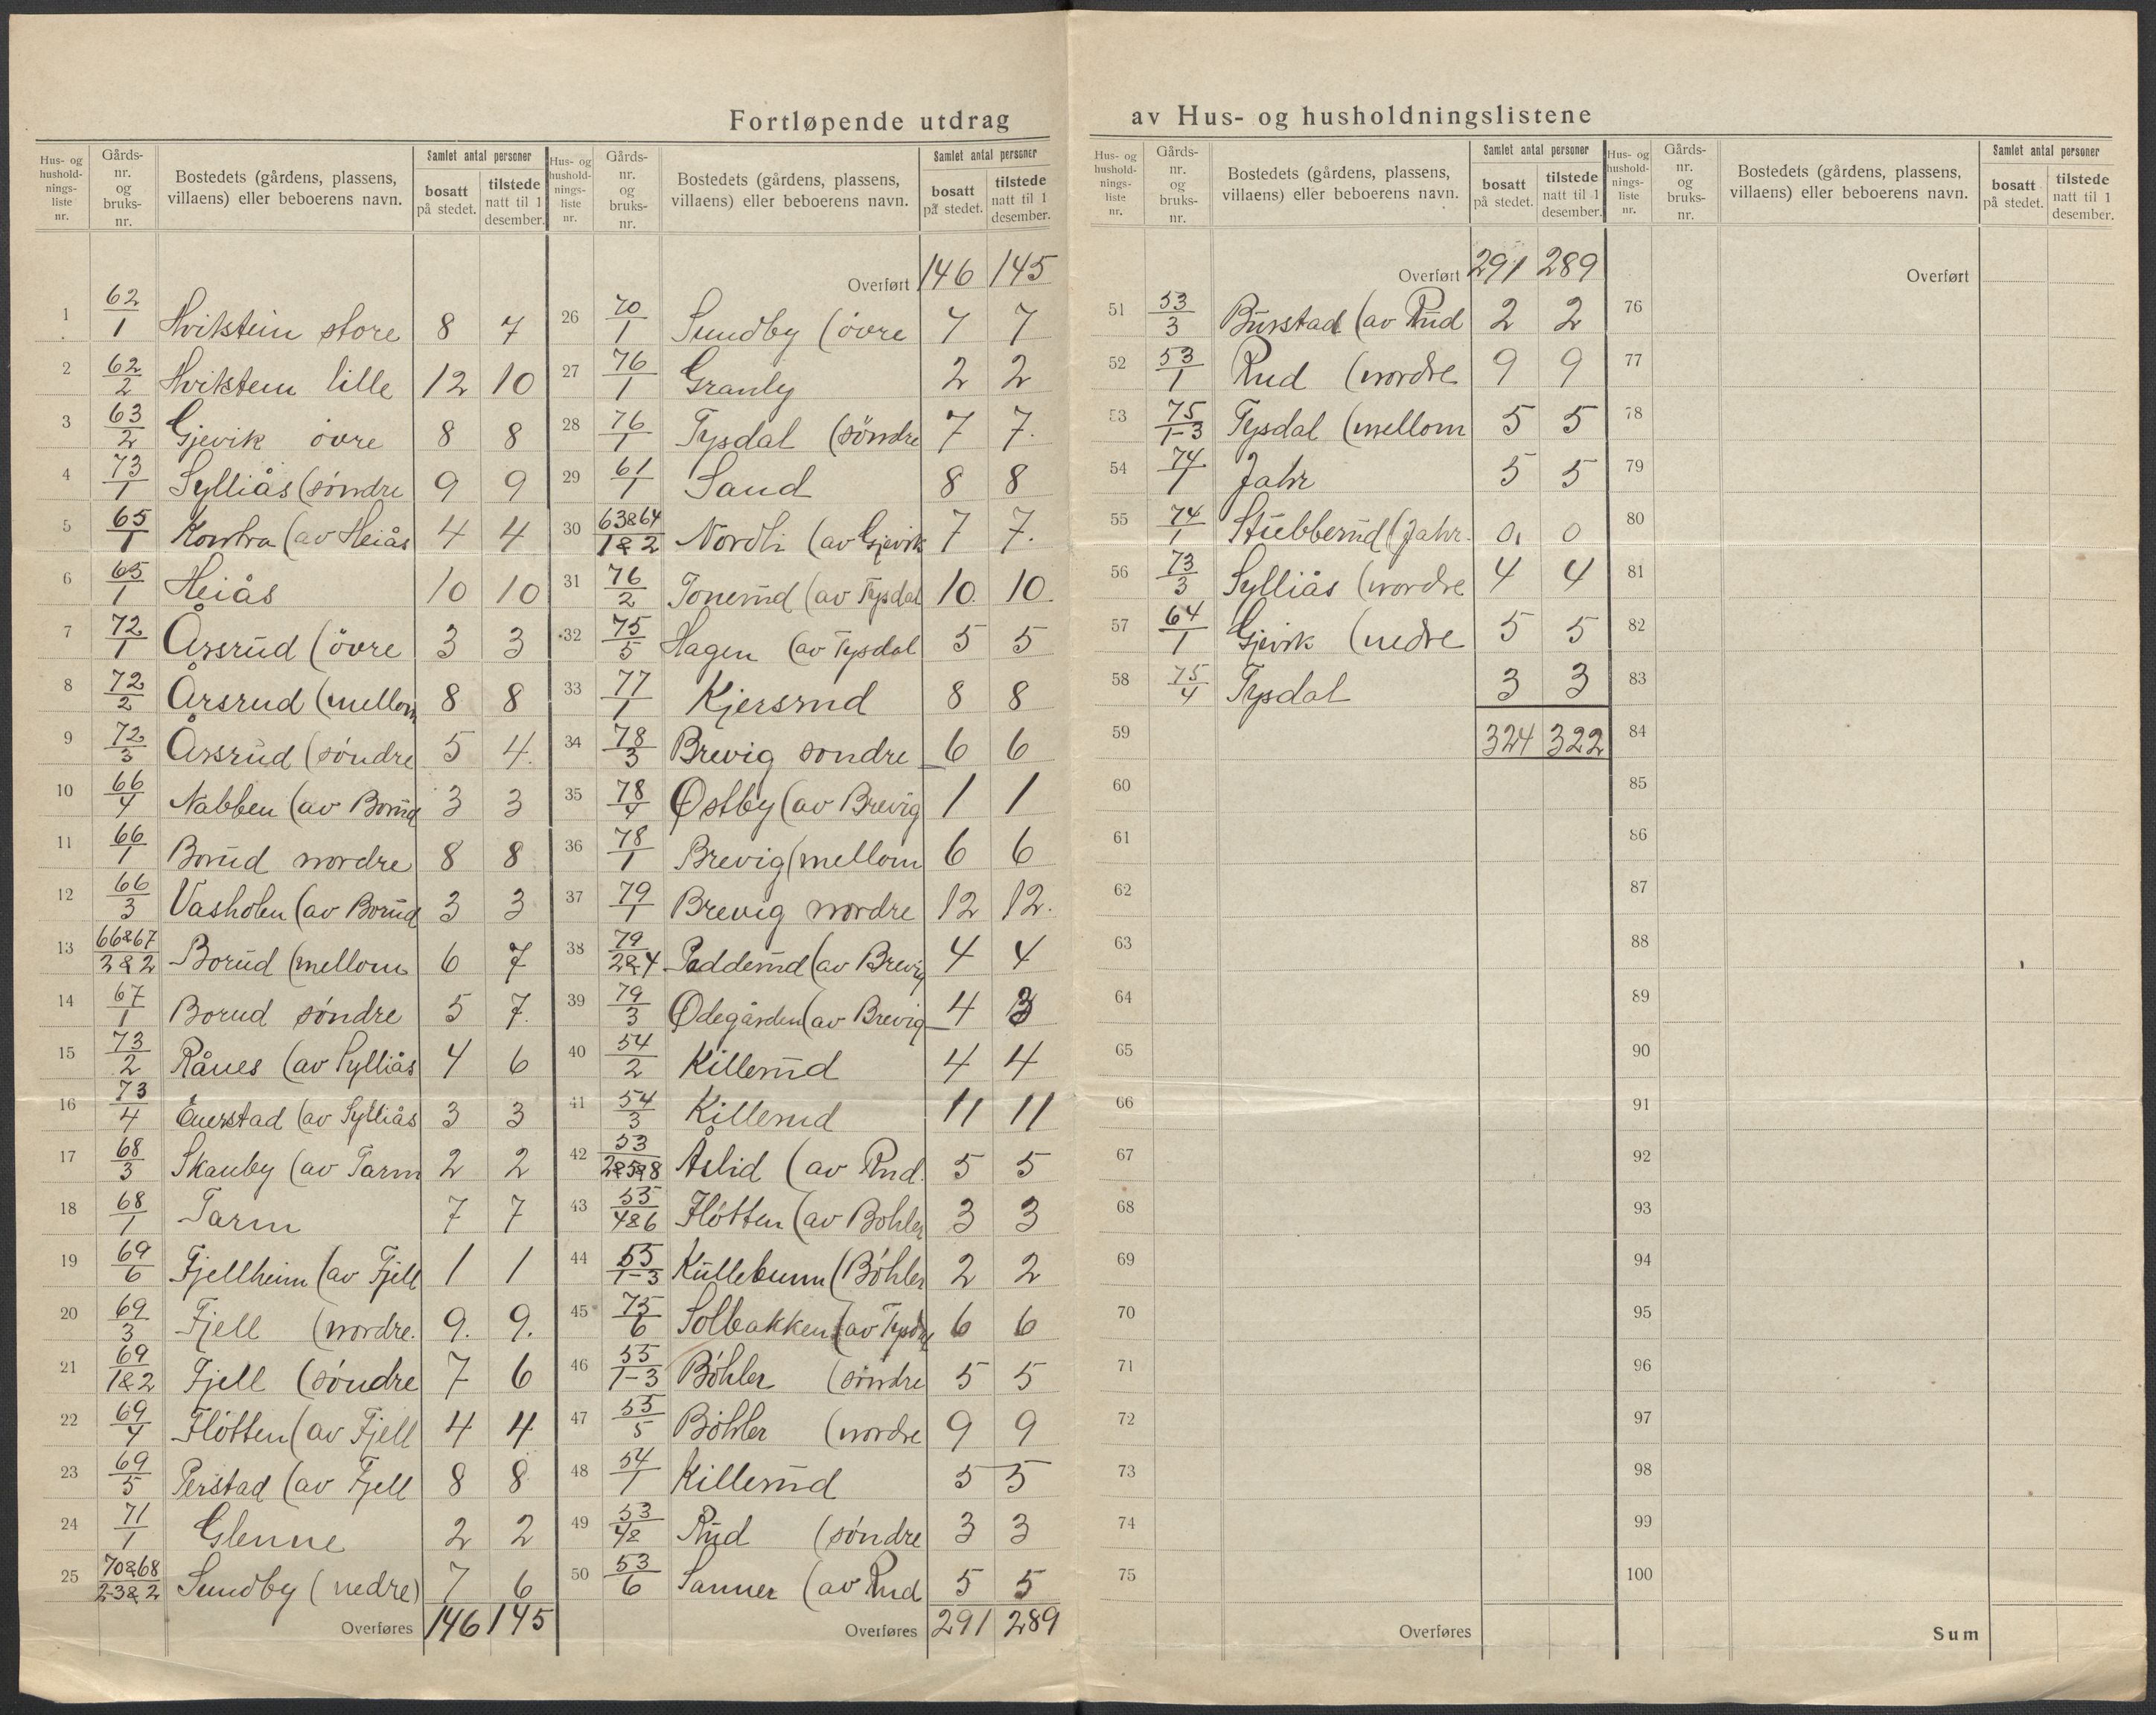 Fortløpende utdrag av Hus- og husholdningslistene
Hus- og husholdningsliste nr. | Gårds-nr. og bruks-nr. | Bostedets (gårdens, plassens, villaens) eller beboerens navn. | Samlet antal personer: bosatt på stedet. | tilstede natt til 1 desember.
1 62/1 Hvikstein store 8 7
2 62/2 Hvikstein lille 12 10
3 63/2 Gjevik övre 8 8
4 73/1 Sylliås (søndre 9 9
5 65/1 Kontra (av Heiås 4 4
6 65/1 Heiås 10 10
7 72/1 Årsrud (övre 3 3
8 72/2 Årsrud (mellom 8 8
9 72/3 Årsrud (söndre 5 4.
10 66/4 Nabben (av Borud 3 3
11 66/1 Borud nordre 8 8
12 66/3 Vasholen (av Borud 3 3
13 66&67/2&2 Borud (mellom 6 7
14 67/1 Borud söndre 5 7.
15 73/2 Rånes (av Sylliås 4 6
16 73/4 Enerstad (av Sylliås 3 3
17 68/3 Skauby (av Tarm 2 2
18 68/1 Tarm 7 7
19 69/6 Fjellheim (av Fjell 1 1
20 69/3 Fjell (nordre. 9. 9.
21 69/1&2 Fjell (söndre 7 6
22 69/4 Flötten (av Fjell 4 4
23 69/5 Perstad (av Fjell 8 8
24 71/1 Glenne 2 2
25 70&68/2-3&2 Sundby (nedre) 7 6
Overføres 146 145
Hus- og husholdningsliste nr. | Gårds-nr. og bruks-nr. | Bostedets (gårdens, plassens, villaens) eller beboerens navn. | Samlet antal personer: bosatt på stedet. | tilstede natt til 1 desember.
Overført 146 145
26 70/1 Sundby (övre 7 7
27 76/1 Granly 2 2
28 76/1 Tysdal (söndre 7 7.
29 61/1 Sand 8 8
30 63&64/1&2 Nordli (av Gjevik 7 7.
31 76/2 Tonerud (av Tysdal 10. 10.
32 75/5 Hagen (av Tysdal 5 5
33 77/1 Kjersrud 8 8
34 78/3 Brevig søndre 6 6
35 78/4 Østby (av Brevig 1 1
36 78/1 Brevig (mellom 6 6
37 79/1 Brevig nordre 12 12.
38 79/2&4 Pedderud (av Brevig 4 4
39 79/3 Ødegården (av Brevig 4 3
40 54/2 Killerud 4 4
41 54/3 Killerud 11 11
42 53/2&5&8 Åslid (av Rud. 5 5
43 55/4&6 Flötten (av Bøhler 3 3
44 55/1-3 Küllebunn (Bøhler 2 2
45 75/6 Solbakken (av Tysdal 6 6
46 55/1-3 Bøhler (søndre 5 5
47 55/5 Bøhler (nordre 9 9
48 54/1 Killerud 5 5
49 53/4& Rud (søndre 3 3
50 53/6 Sanner (av Rud 5 5
Overføres 291 289
Hus- og husholdningsliste nr. | Gårds-nr. og bruks-nr. | Bostedets (gårdens, plassens, villaens) eller beboerens navn. | Samlet antal personer: bosatt på stedet. | tilstede natt til 1 desember.
Overført 291 289
51 53/3 Burstad (av Rud 2 2
52 53/1 Rud (nordre 9 9
53 75/1-3 Tysdal (mellom 5 5
54 74/1 Jahr 5 5
55 74/1 Stubberud (Jahr. 0. 0
56 73/3 Sylliås (nordre 4 4
57 64/1 Gjevik (nedre 5 5
58 75/4 Tysdal 3 3
59 324 322
60
61
62
63
64
65
66
67
68
69
70
71
72
73
74
75
Overføres
Hus- og husholdningsliste nr. | Gårds-nr. og bruks-nr. | Bostedets (gårdens, plassens, villaens) eller beboerens navn. | Samlet antal personer: bosatt på stedet. | tilstede natt til 1 desember.
Overført
76
77
78
79
80
81
82
83
84
85
86
87
88
89
90
91
92
93
94
95
96
97
98
99
100
Sum